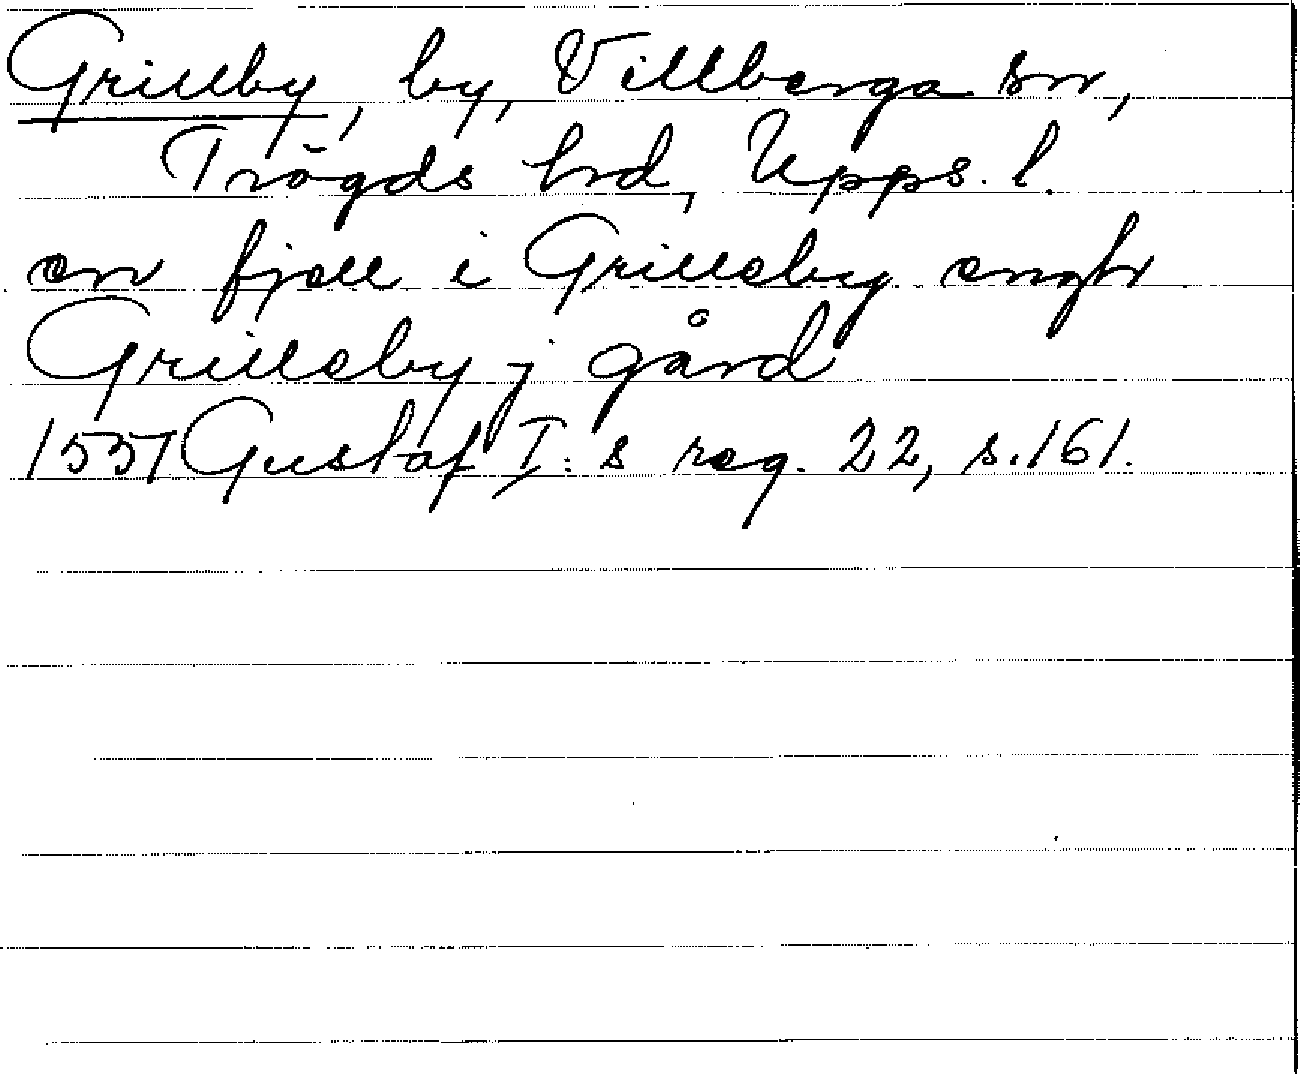 Grillby, by, Villberga sn,
Trögds hd, Upps. l.
en fjell i Grilleby
Grilleby j gård
1551 Gustaf I:s reg. 22, s. 161.